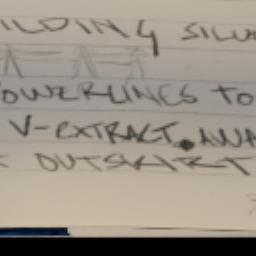 ILDING SILU
POWERLINES TO
V-EXTRACT. AWA
OUTSKIRT